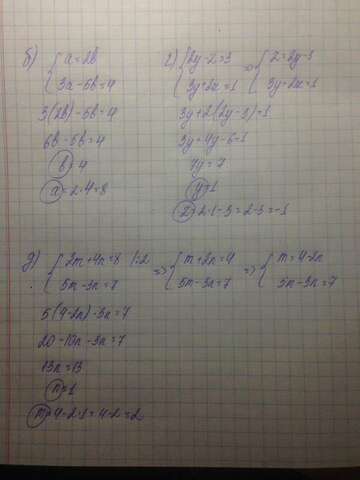 б) { a=2b
3a-5b=4
3(2b)-5b=4
6b-5b=4
b=4
a=2·4=8
г) { 2y-z=3 => { z=2y-3
3y+2z=1 3y+2z=1
3y+2(2y-3)=1
3y+4y-6=1
7y=7
y=1
z=2·1-3=2-3=-1
д) { 2m+4n=8 |:2 => { m+2n=4 => { m=4-2n
5m-3n=7 5m-3n=7 5m-3n=7
5(4-2n)-3n=7
20-10n-3n=7
13n=13
n=1
m=4-2·1=4-2=2